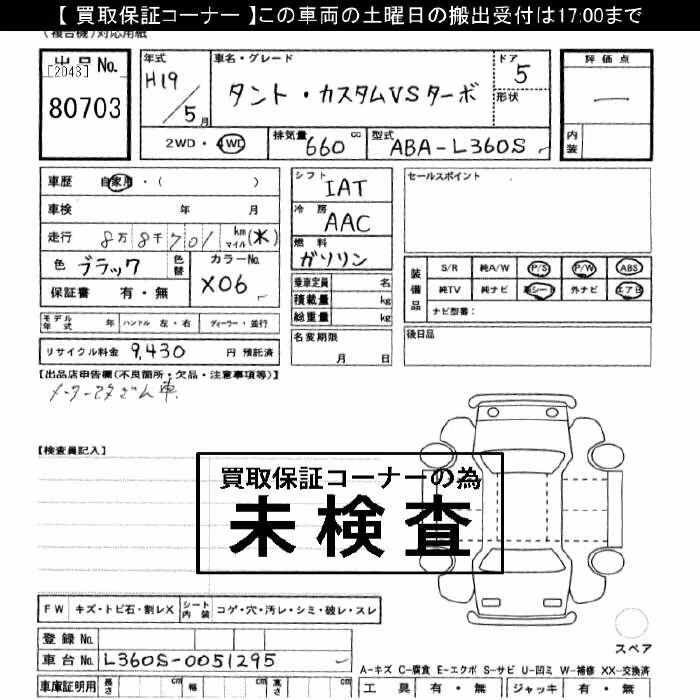 【 買取保証コーナー 】この車両の土曜日の搬出受付は17:00まで
(複合機)対応用紙
出品No.
[2043]
80703
年式
H19/5月
車名・グレード
タント・カスタムVSターボ
ドア
5
形状
評価点
―
内装
2WD・4WD
排気量
660 cc
型式
ABA-L360S
車歴 自家用・( )
車検 年 月
走行 8万8千701 km マイル (*)
色 ブラック 色替
カラーNo.
X06
保証書 有・無
シフト
IAT
冷房
AAC
燃料
ガソリン
乗車定員 名
積載量 kg
総重量 kg
セールスポイント
装備品
S/R 純A/W P/S P/W ABS
純TV 純ナビ 革シート 外ナビ エアB
ナビ型番:
モデル年式 年 ハンドル 左・右 ディーラー・並行
名変期限
月 日
後日品
リサイクル料金 9,430 円 預託済
【出品店申告欄(不良箇所・欠品・注意事項等)】
メーター
車
【検査員記入】
買取保証コーナーの為
未検査
FW キズ・トビ石・割レX シート内装 コゲ・穴・汚レ・シミ・破レ・スレ
登録No.
車台No. L360S-0051295
スペア
A-キズ C-腐食 E-エクボ S-サビ U-凹ミ W-補修 XX-交換済
車庫証明用 長さ cm 幅 cm 高さ cm
工具 有・無 ジャッキ 有・無